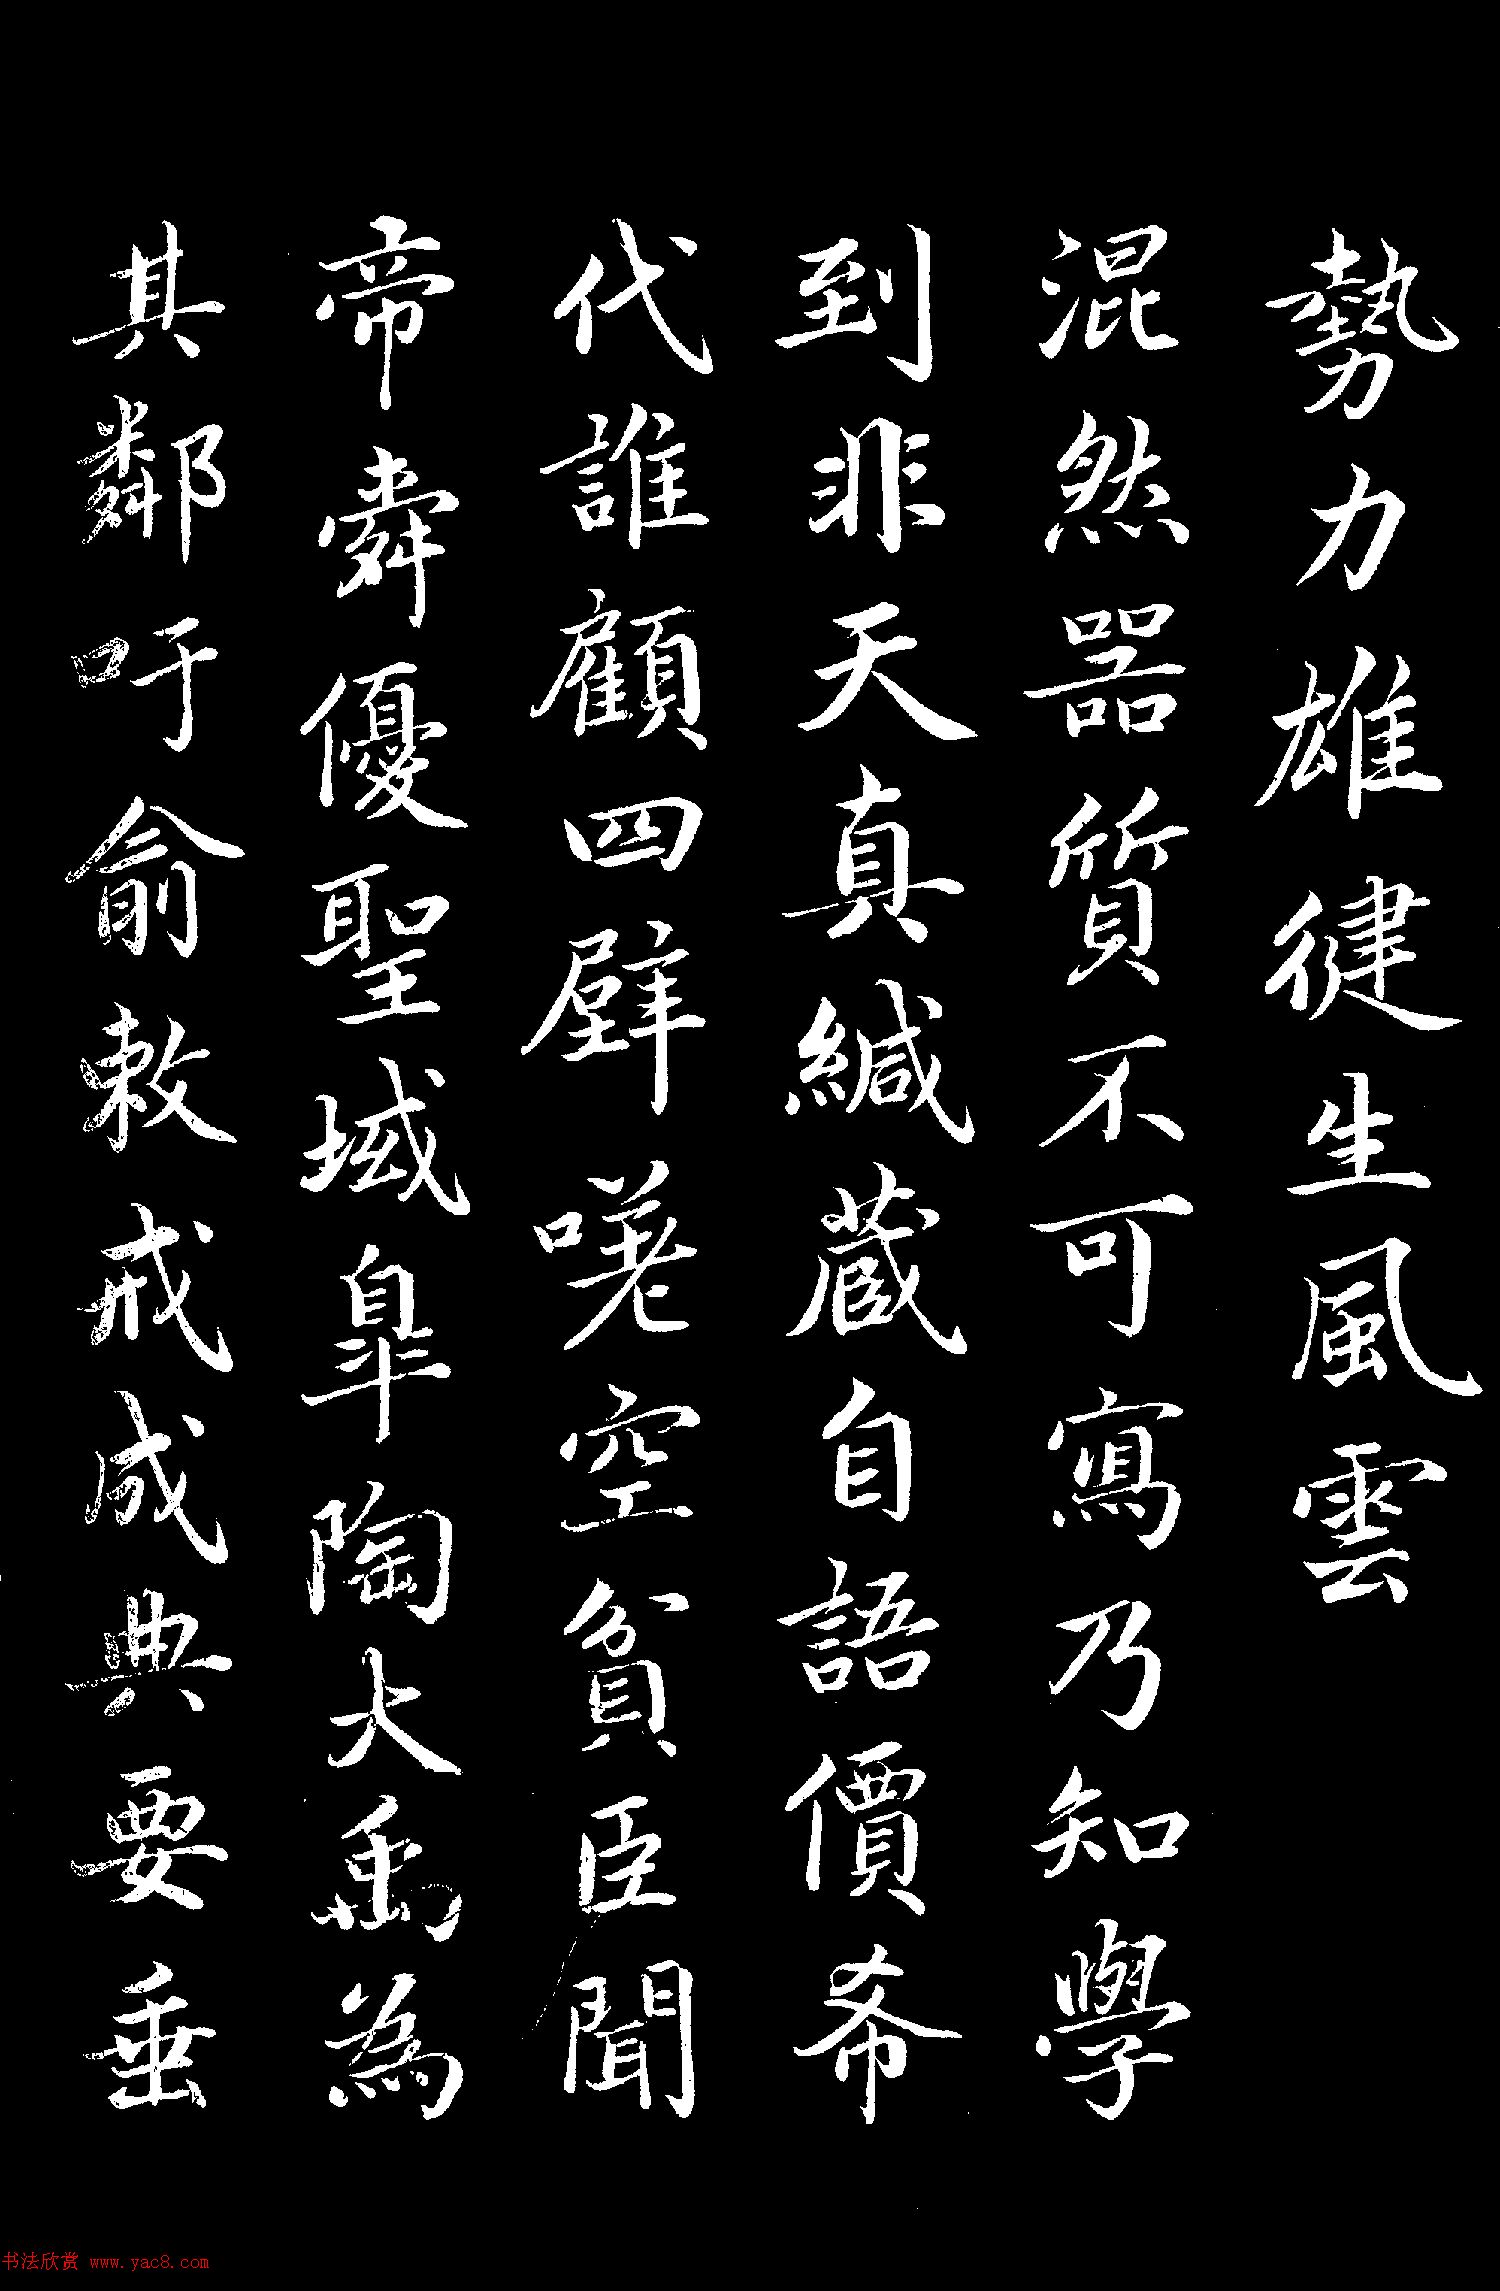 勢力雄健生風雲
混然器質不可寫乃知學
到非天真緘藏自語價希
代誰顧四壁嗟空貧臣聞
帝舜優聖域皐陶大禹為
其鄰吁俞敕戒成典要垂
书法欣赏 www.yac8.com